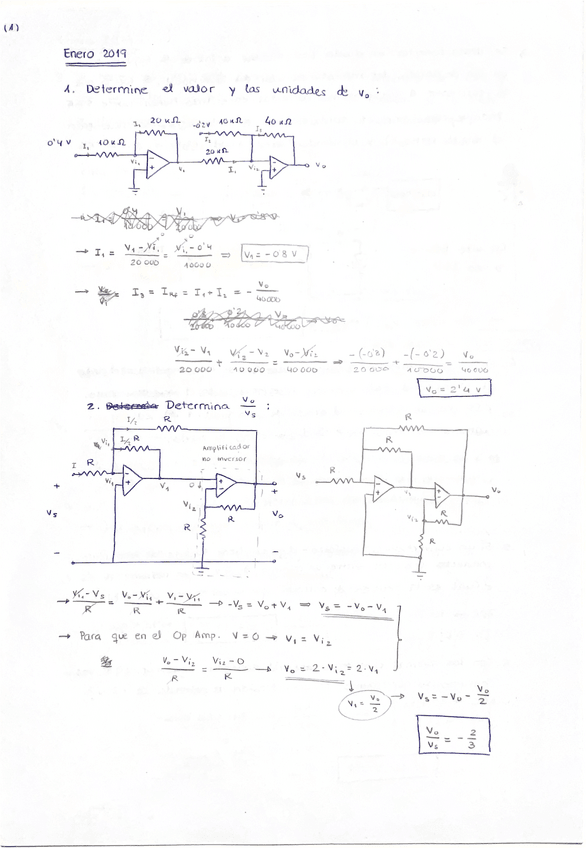 (1)
Enero 2019
1. Determine el valor y las unidades de Vo :
20kΩ -0'2V 10kΩ 40kΩ
0'4 V I₁ 10kΩ I₁ I₂
20kΩ
Vi₁ V₁ I₁ Vi₂ Vo
→ I₁ = (V₁ - Vi₁)/20000 = (Vi₁ - 0'4)/10000 ⇒ V₁ = -0'8 V
→ I₃ = I₁ + I₂ = - Vo/40000
(Vi₂ - V₁)/20000 + (Vi₂ - V₂)/10000 = (Vo - Vi₂)/40000 ⇒ (-(-0'8))/20000 + (-(-0'2))/10000 = Vo/40000
Vo = 2'4 V
2. Determina Vo/Vs :
I/2 R
Vi₁ I/2 R Amplificador no inversor
I R Vi₁ V₁ 0↓
+ Vs - Vi₂ R R + Vo -
R
R
Vs R V₁ Vo
Vi₂ R
R
→ (Vi₁ - Vs)/R = (Vo - Vi₁)/R + (V₁ - Vi₁)/R → -Vs = Vo + V₁ ⇒ Vs = -Vo - V₁
→ Para que en el Op Amp. V = 0 → V₁ = Vi₂
(Vo - Vi₂)/R = (Vi₂ - 0)/R → Vo = 2·Vi₂ = 2·V₁
V₁ = Vo/2 → Vs = -Vo - Vo/2
Vo/Vs = - 2/3